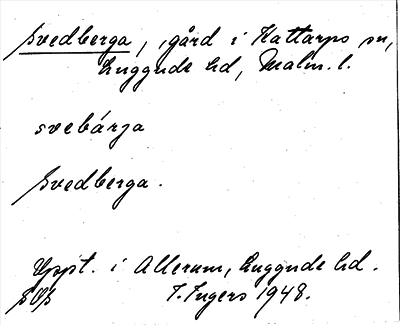 Svedberga, gård i Kattarps sn,
Luggude hd, Malm. l.
svebárja
Svedberga.
Uppt. i Allerum, Luggude hd.
I. Ingers 1948.